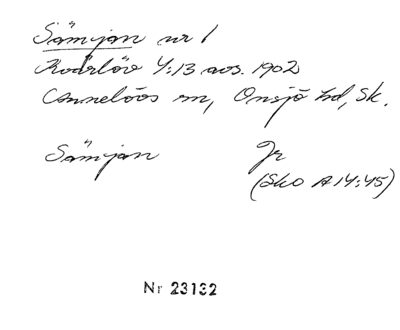 Sämjan nr 1
Kvärlöv 4:13 avs. 1902
Annelövs sn, Onsjö hd, Sk.
Sämjan Jr
(Sko A14:45)
Nr 23132